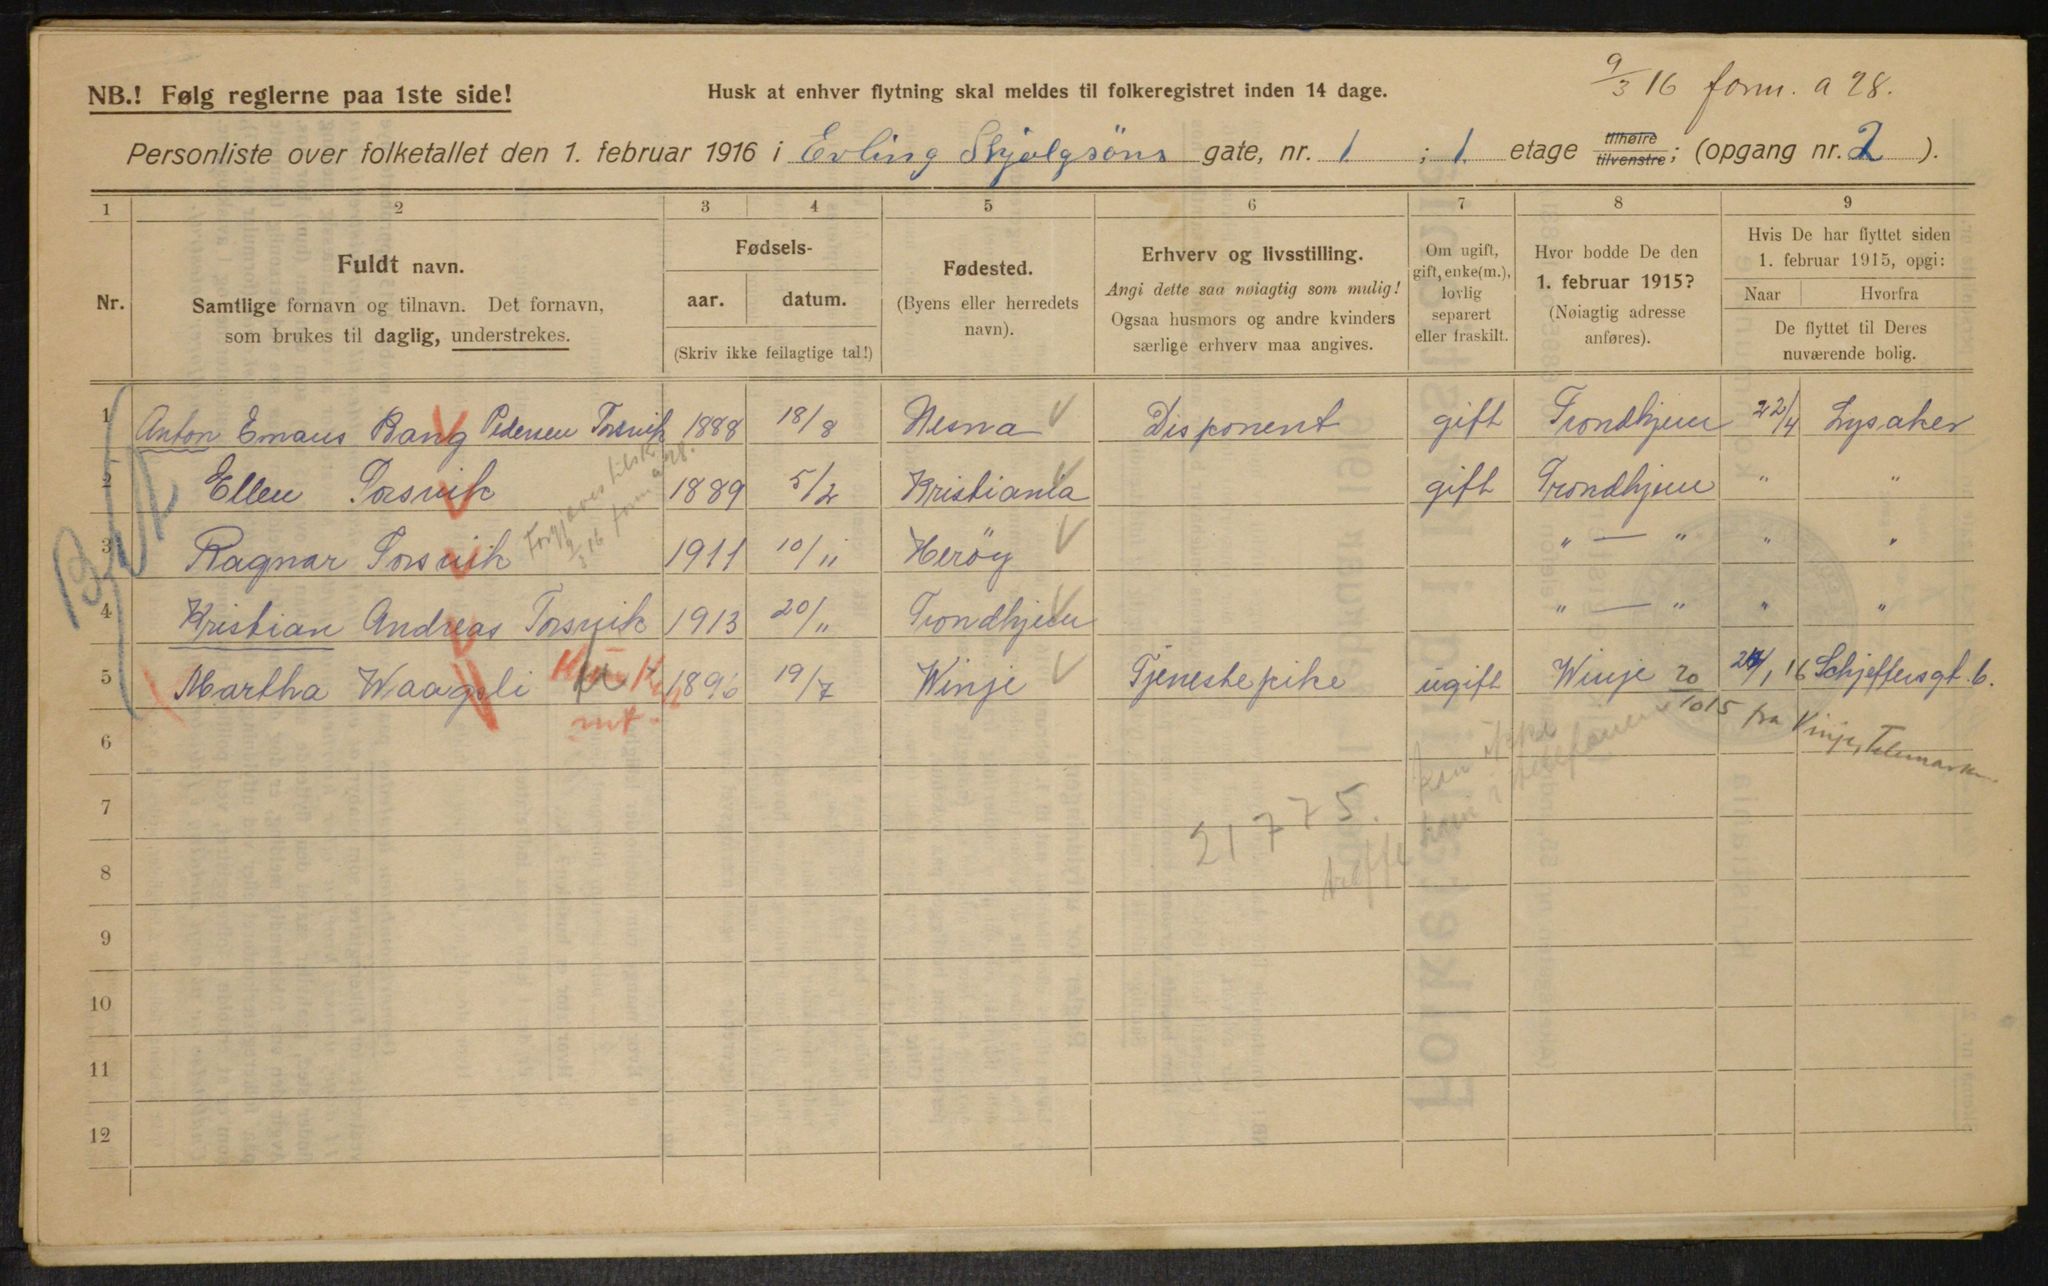 9/3 16 form. a 28.
NB.! Følg reglerne paa 1ste side!
Husk at enhver flytning skal meldes til folkeregistret inden 14 dage.
Personliste over folketallet den 1. februar 1916 i Erling Skjalgsöns gate, nr. 1 ; 1. etage tilhøire tilvenstre; (opgang nr. 2 ).
1 2 3 4 5 6 7 8 9
Nr.
Fuldt navn.
Samtlige fornavn og tilnavn. Det fornavn,
som brukes til daglig, understrekes.
Fødsels-
aar. datum.
(Skriv ikke feilagtige tal!)
Fødested.
(Byens eller herredets
navn).
Erhverv og livsstilling.
Angi dette saa nøiagtig som mulig!
Ogsaa husmors og andre kvinders
særlige erhverv maa angives.
Om ugift,
gift, enke(m.),
lovlig
separert
eller fraskilt.
Hvor bodde De den
1. februar 1915?
(Nøiagtig adresse
anføres).
Hvis De har flyttet siden
1. februar 1915, opgi:
Naar Hvorfra
De flyttet til Deres
nuværende bolig.
1 Anton Emaus Bang Pedersen Torsvik 1888 18/8 Nesna Disponent gift Trondhjem 22/4 Lysaker
2 Ellen Torsvik 1889 5/2 Kristiania gift Trondhjem " "
3 Ragnar Torsvik 1911 10/11 Herøy " — " " "
9/3 16 form a 28.
4 Kristian Andreas Torsvik 1913 20/11 Trondhjem " — " " "
5 Martha Waagsli 1896 19/7 Winje Tjenestepike ugift Winje 24/1 16 Schjeftersgt. 6.
20/10 15 fra Vinje, Telemarken
6
7
21775.
8
træffe
9
10
11
12